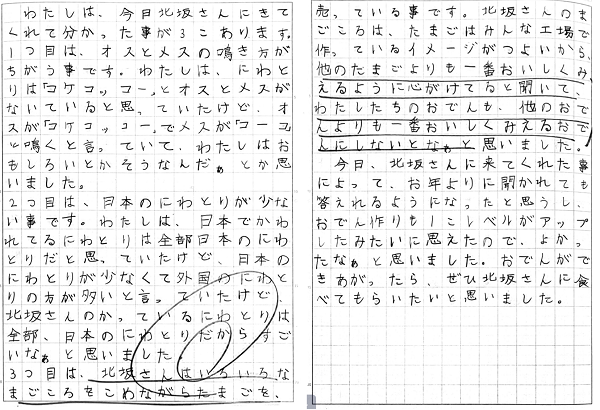 わたしは、今日北坂さんにきて
くれて分かった事が3こあります。
1つ目は、オスとメスの鳴き方が
ちがう事です。わたしは、にわと
りは「コケコッコー」とオスとメスが
ないていると思っていたけど、オ
スが「コケコッコー」でメスが「コーコ」
と鳴くと言っていて、わたしはお
もしろいとかそうなんだぁとか思
いました。
2つ目は、日本のにわとりが少な
い事です。わたしは、日本でかわ
れてるにわとりは全部日本のにわ
とりだと思っていたけど、日本の
にわとりが少なくて外国のにわと
りの方が多いと言っていたけど、
北坂さんのかっているにわとりは
全部、日本のにわとりだからすご
いなぁと思いました。
3つ目は、北坂さんはいろいろな
まごころをこめながらたまごを、
売っている事です。北坂さんのま
ごころは、たまごはみんな工場で
作っているイメージがつよいから、
他のたまごよりも一番おいしくみ
えるように心がけてると聞いて、
わたしたちのおでんも、他のおで
んよりも一番おいしくみえるおで
んにしないとなぁと思いました。
今日、北坂さんに来てくれた事
によって、お年よりに聞かれても
答えれるようになったと思うし、
おでん作りも1こレベルがアップ
したみたいに思えたので、よかっ
たなぁと思いました。おでんがで
きあがったら、ぜひ北坂さんに食
べてもらいたいと思いました。